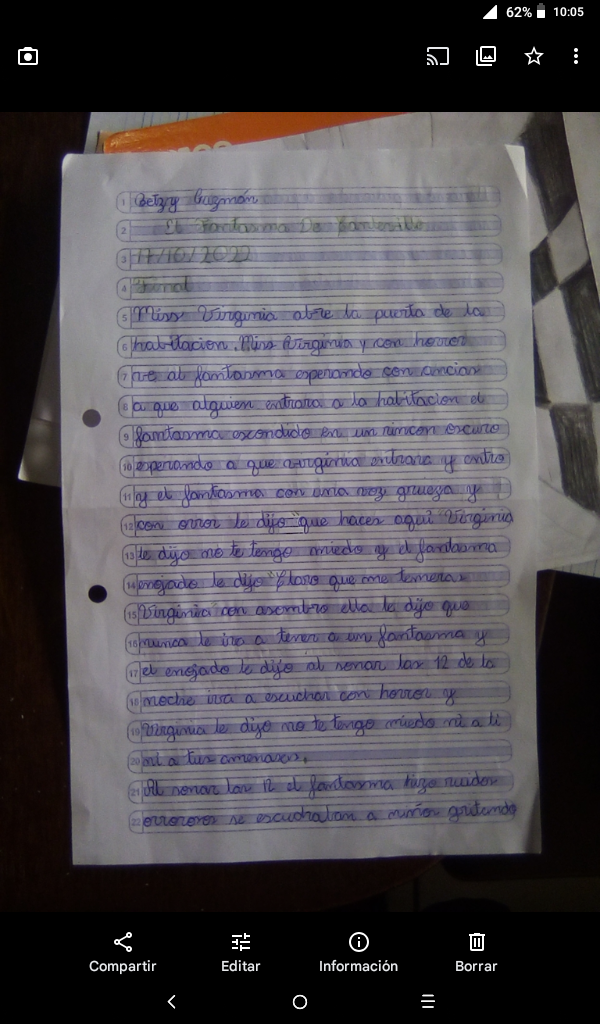 62% 10:05
1 Betzy Guzmán
2 El Fantasma De Canterville
3 17/10/2022
4 Final
5 Miss Virginia abre la puerta de la
6 habitacion. Miss Virginia y con horror
7 ve al fantasma esperando con ancias
8 a que alguien entrara a la habitacion el
9 fantasma escondido en un rincon oscuro
10 esperando a que virginia entrara y entro
11 y el fantasma con una voz grueza y
12 con orror le dijo "que haces aquí Virginia
13 le dijo no te tengo miedo y el fantasma
14 enojado le dijo "Claro que me temeras
15 Virginia con asombro ella le dijo que
16 nunca le ira a tener a un fantasma y
17 el enojado le dijo al sonar las 12 de la
18 noche ira a escuchar con horror y
19 Virginia le dijo no te tengo miedo ni a ti
20 ni a tus amenasas.
21 Al sonar las 12 el fantasma hizo ruidos
22 errorosos se escuchaban a niños gritando
Compartir Editar Información Borrar